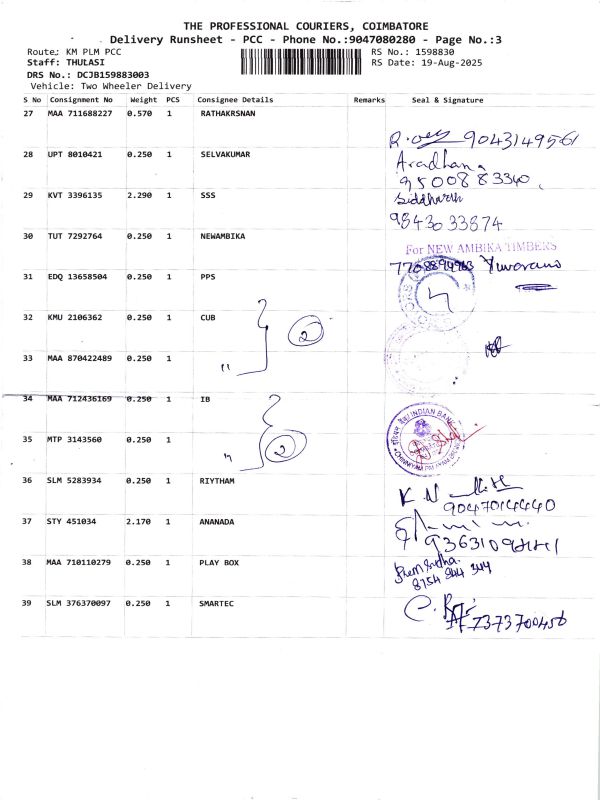 THE PROFESSIONAL COURIERS, COIMBATORE
Delivery Runsheet - PCC - Phone No.:9047080280 - Page No.:3
Route: KM PLM PCC
RS No.: 1598830
Staff: THULASI
RS Date: 19-Aug-2025
DRS No.: DCJB159883003
Vehicle: Two Wheeler Delivery
S No Consignment No Weight PCS Consignee Details Remarks Seal & Signature
27 MAA 711688227 0.570 1 RATHAKRSNAN
9043149561
28 UPT 8010421 0.250 1 SELVAKUMAR
Aradhana
9500883340
29 KVT 3396135 2.290 1 SSS
Siddharth
98430 33874
30 TUT 7292764 0.250 1 NEWAMBIKA
For NEW AMBIKA TIMBERS
31 EDQ 13658504 0.250 1 PPS
32 KMU 2106362 0.250 1 CUB
2
33 MAA 870422489 0.250 1 "
34 MAA 712436169 0.250 1 IB
INDIAN BANK
35 MTP 3143560 0.250 1 " 2
36 SLM 5283934 0.250 1 RIYTHAM
9047014440
37 STY 451034 2.170 1 ANANADA
38 MAA 710110279 0.250 1 PLAY BOX
8754 344 344
39 SLM 376370097 0.250 1 SMARTEC
7373700456